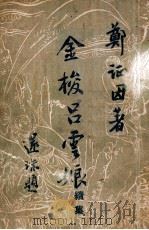 鄭证因著
金梭呂雲娘
續集